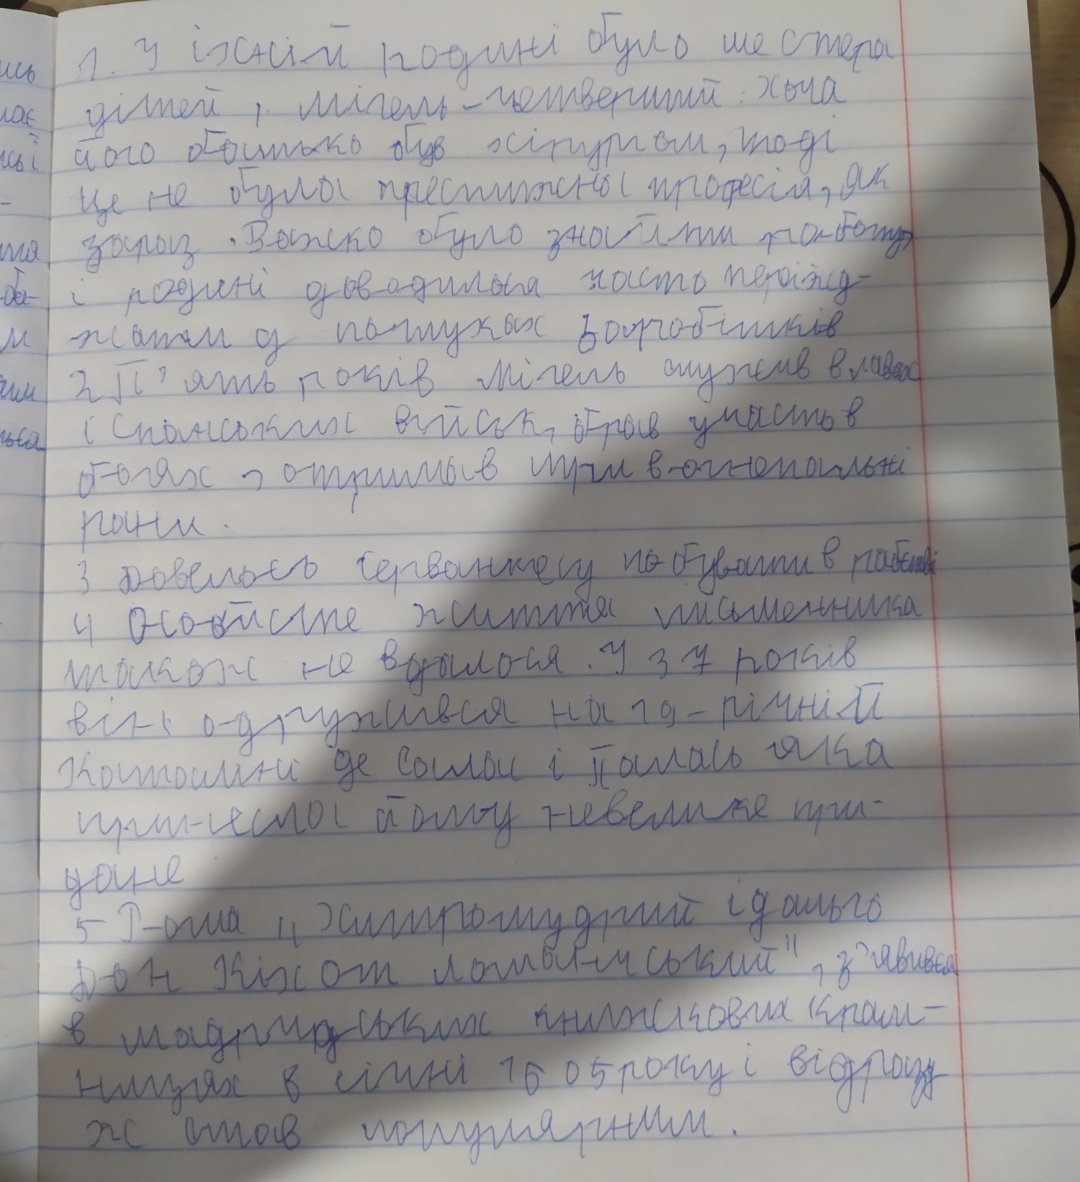 ись
1. У їхній родині було шестера
дітей, Мігель-четвертий. Хоча
його батько був хірургом, тоді
це не була престижна професія, як
зараз. Важко було знайти роботу,
і родині доводилося часто переїжд-
жати у пошуках заробітків
2 П'ять років Мігель служив в лавах
Іспанських військ, брав участь в
боях, отримав три вогнепальні
рани.
3 довелось Сервантесу побувати в рабстві
4 Особисте життя письменника
також не вдалося. У 37 років
він одружився на 19-річній
Каталіні де Салас і Паласьо яка
принесла йому невелике при-
дане
5 Роман „Хитромудрий ідальго
Дон Кіхот ламанчський", з'явився
в мадридських книжкових крам-
ницях в січні 1605 року і відразу
ж став популярним.